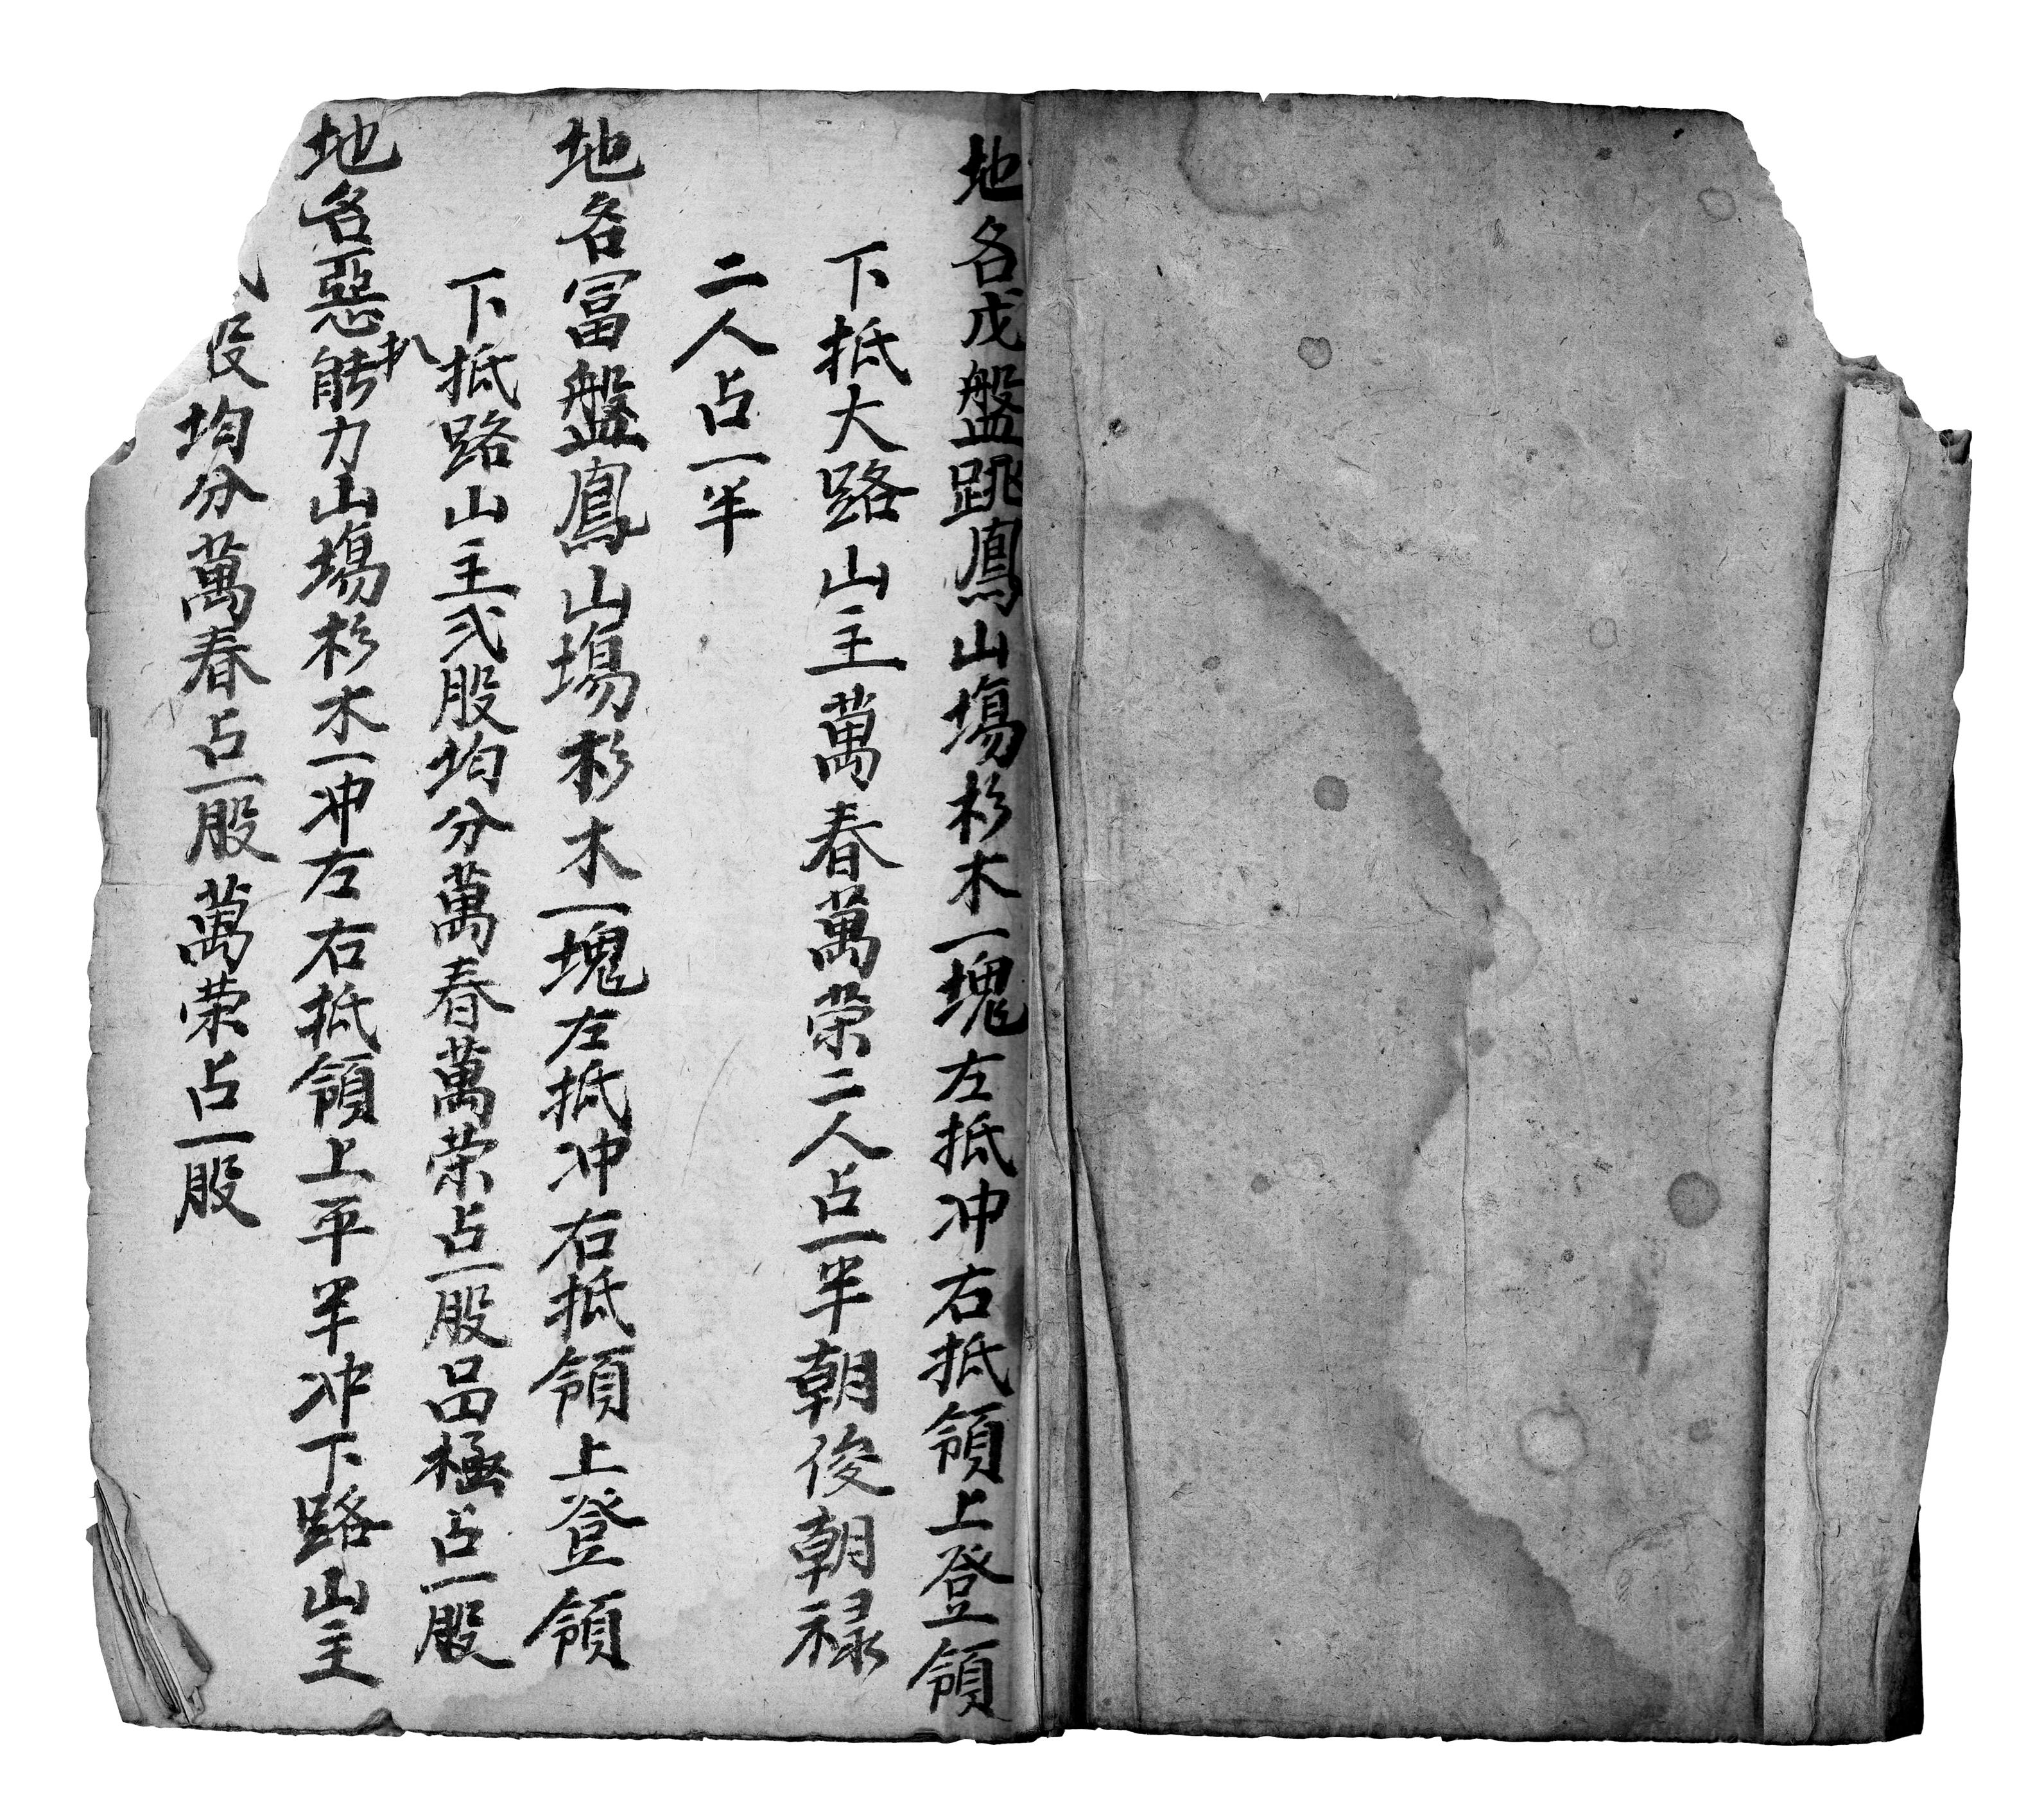 地名戊盤跳鳳山塲杉木一塊左抵冲右抵領上登領
下抵大路山主萬春萬荣二人占一半朝俊朝禄
二人占一半
地名冨盤鳳山塲杉木一塊左抵冲右抵領上登領
下抵路山主弍股均分萬春萬荣占一股昌極占一股
地名惡能扒力山塲杉木一冲左右抵領上平半冲下路山主
股均分萬春占一股萬荣占一股